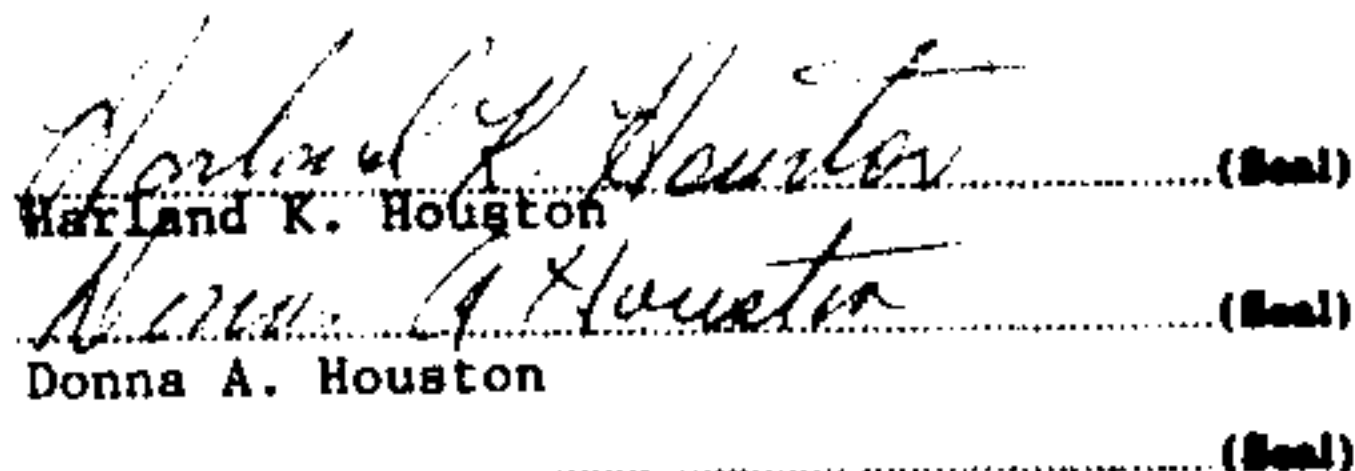 Harland K. Houston (Seal)
Harland K. Houston
Donna A Houston (Seal)
Donna A. Houston
(Seal)